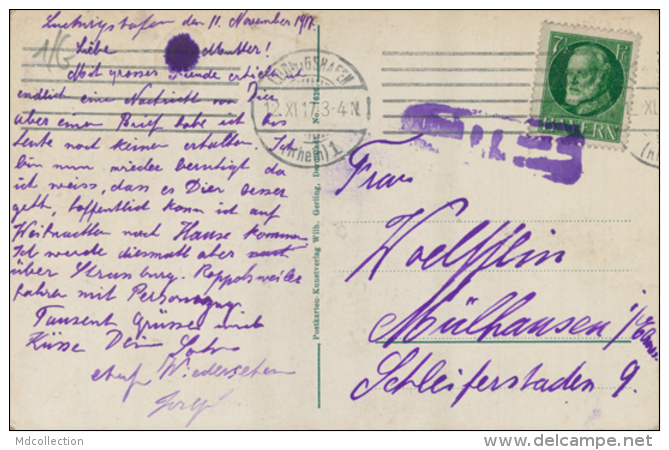 Ludwigshafen den 11. November 1917.
Liebe Mutter!
Mit grosser Freude erhielt ich
endlich eine Nachricht von Dier
aber einen Brief habe ich bis
heute noch keinen erhalten. Ich
bin nun wieder beruhigt da
ich weiss, dass es Dier besser
geht, hoffentlich kann ich auf
Weihnachten nach Hause kommen
Ich werde diesmahl aber
über Strassburg. Rappoltsweiler
fahren mit Personenzug
Tausent Grüsse und
Küsse Dein Sohn
auf Wiedersehen
LUDWIGSHAFEN
12.XI.17.3-4N.
(Rhein) 1
7½ Pf
BAYERN
Postkarten-Kunstverlag Wilh. Gerling, Darmstadt.
Frau
Woelfflin
Mülhausen i/Elsass
Schleiferstaden 9.
Mdcollection
www.delcampe.net